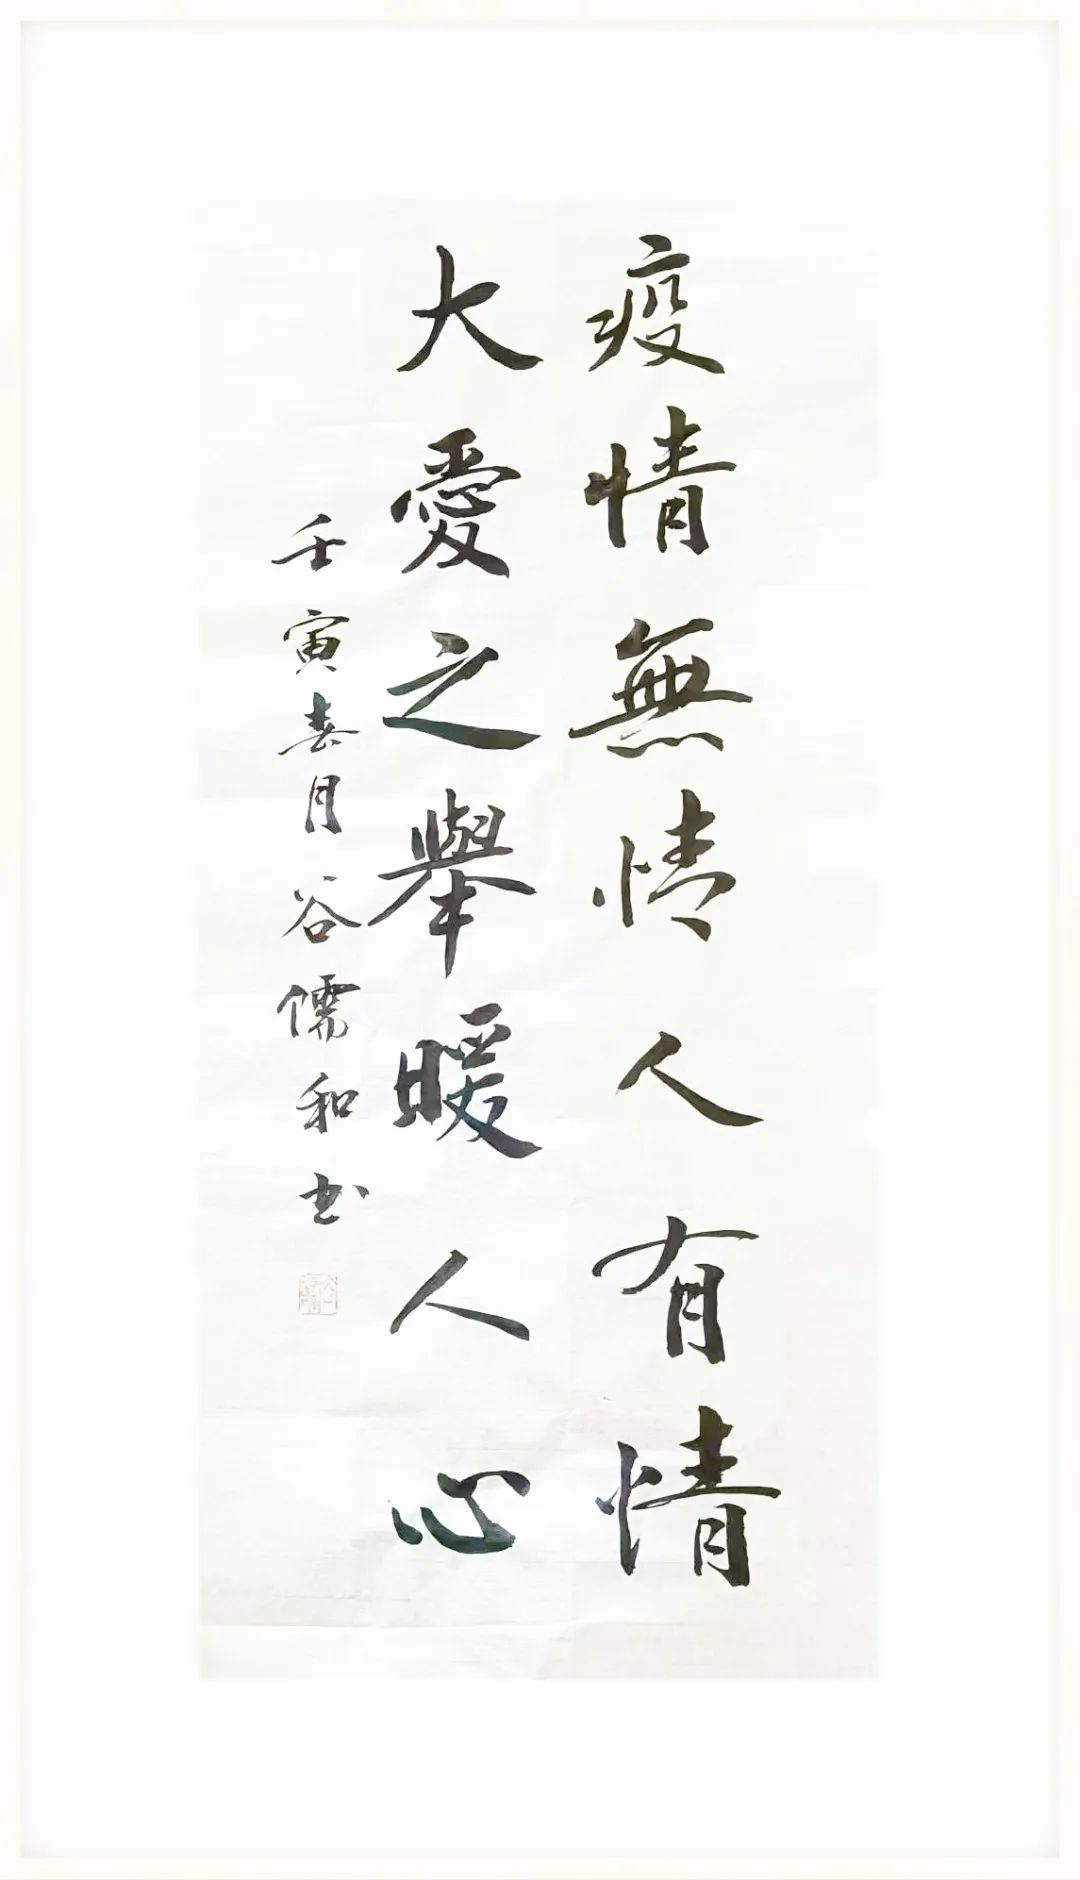 疫情無情人有情
大愛之舉暖人心
壬寅春月谷儒和书